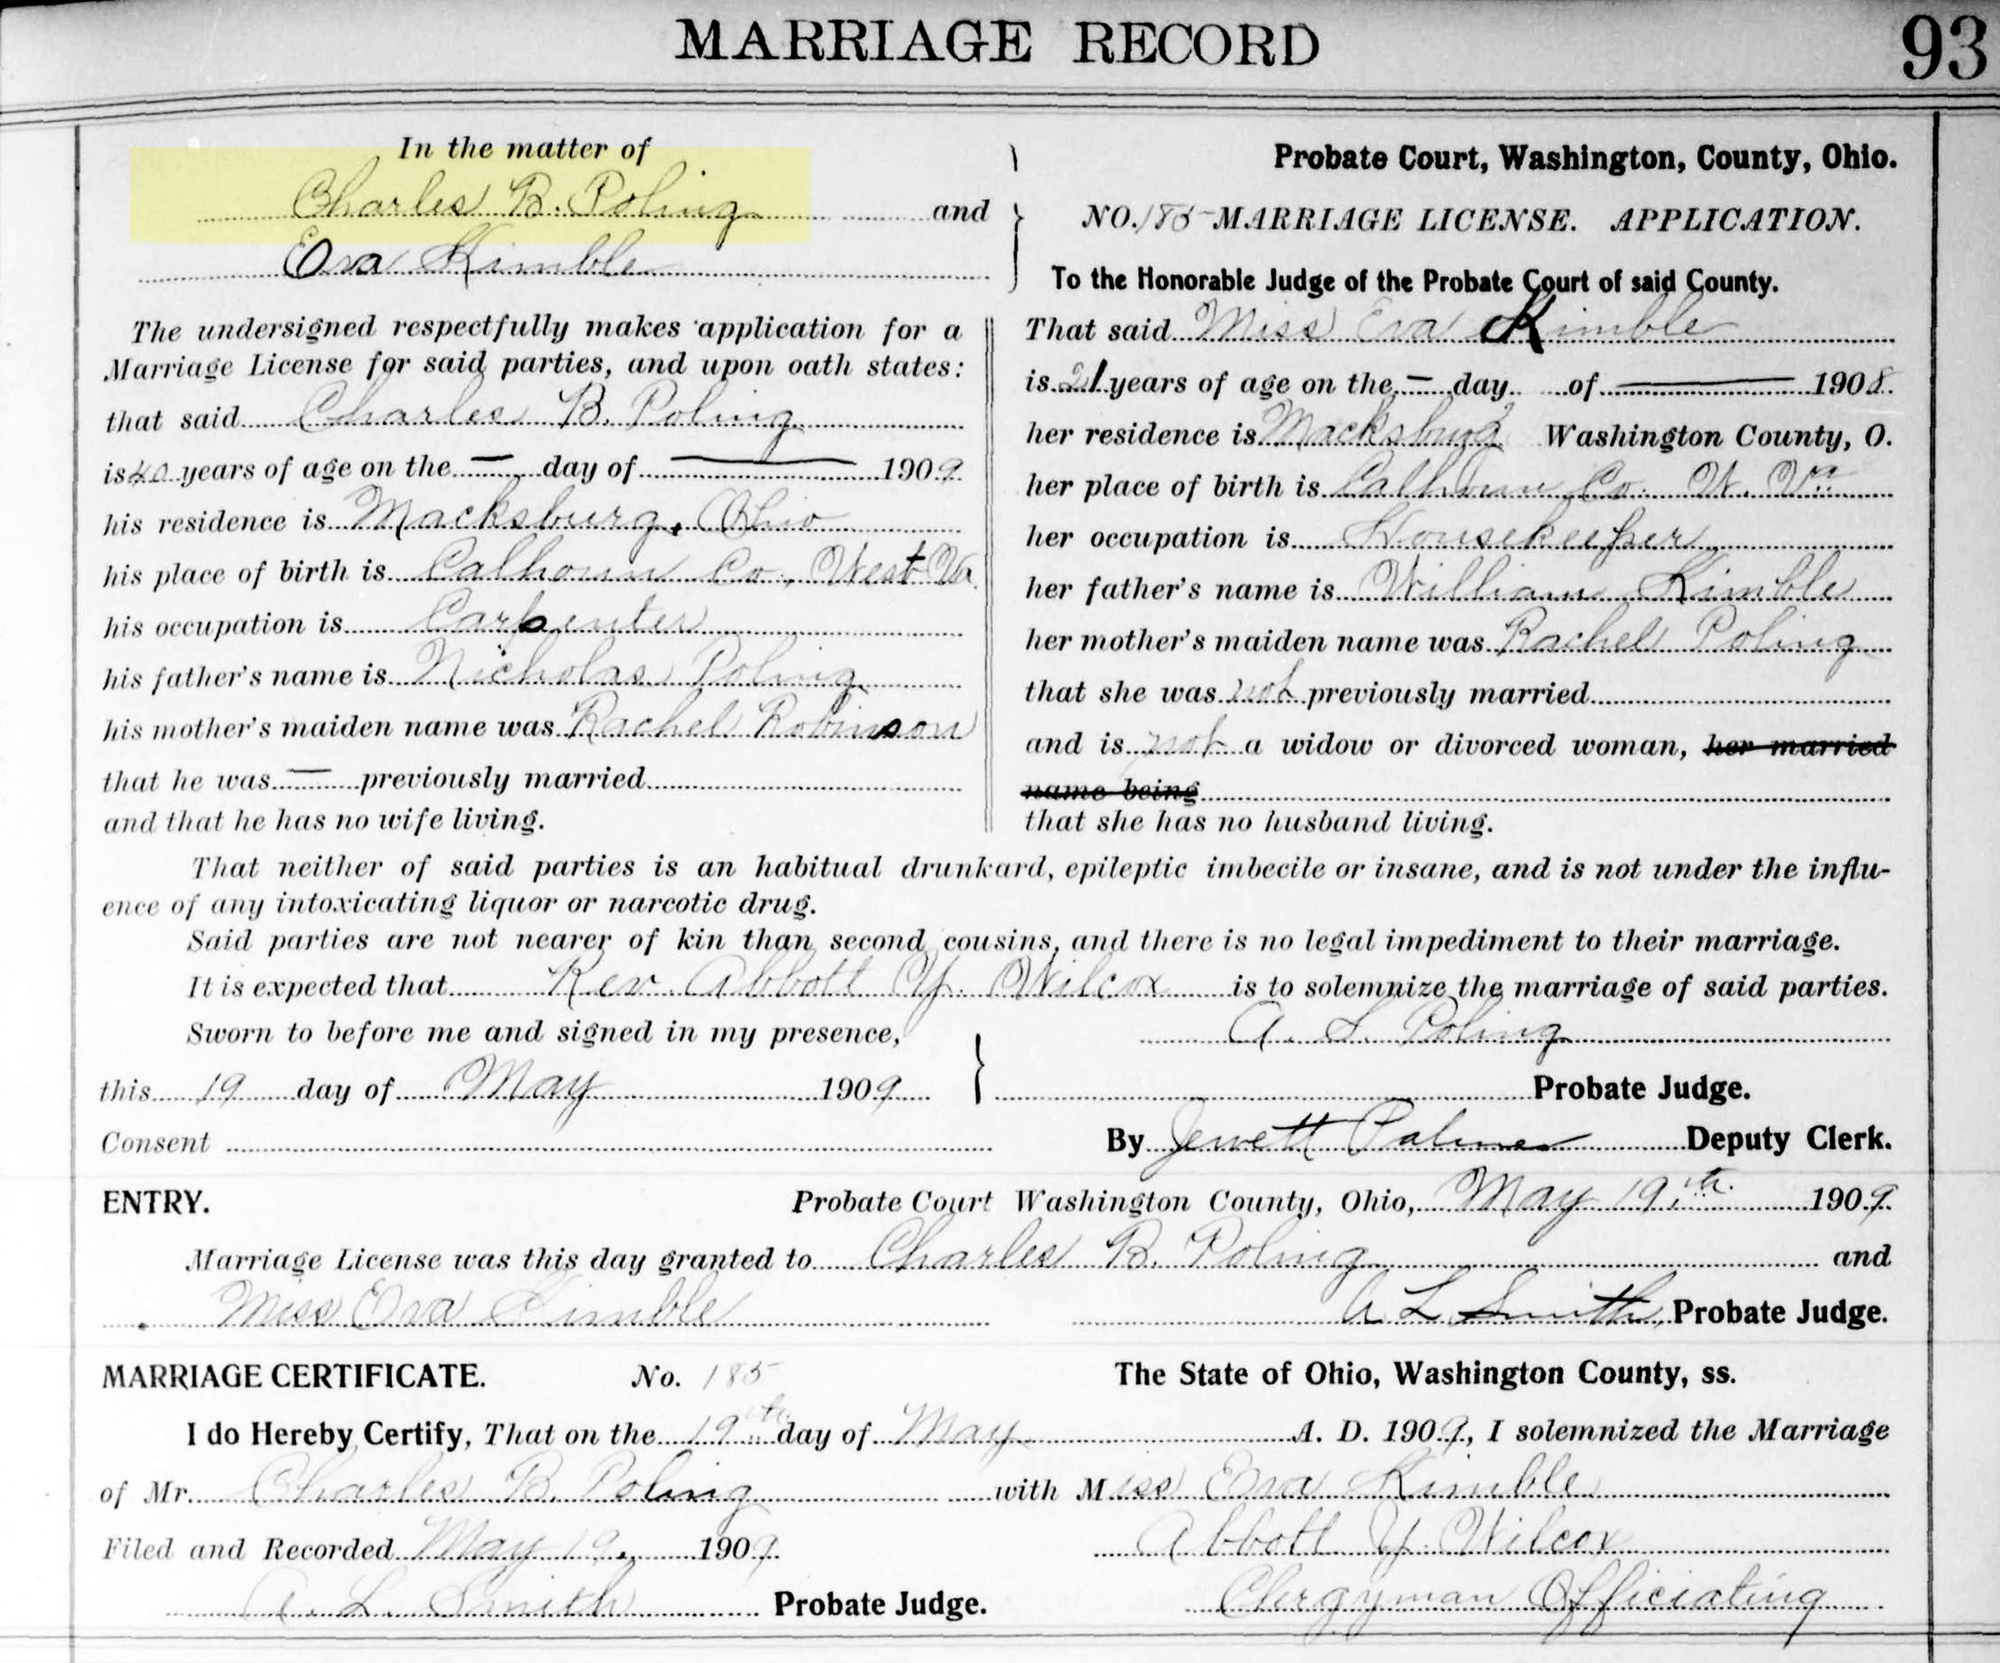 MARRIAGE RECORD 93
In the matter of
Charles B. Poling and
Eva Kimble
Probate Court, Washington, County, Ohio.
NO. 185 MARRIAGE LICENSE. APPLICATION.
To the Honorable Judge of the Probate Court of said County.
The undersigned respectfully makes application for a
Marriage License for said parties, and upon oath states:
that said Charles B. Poling
is 40 years of age on the — day of — 1909
his residence is Macksburg, Ohio
his place of birth is Calhoun Co., West Va.
his occupation is Carpenter
his father's name is Nicholas Poling
his mother's maiden name was Rachel Robinson
that he was — previously married
and that he has no wife living.
That said Miss Eva Kimble
is 21 years of age on the — day of — 1908.
her residence is Macksburg Washington County, O.
her place of birth is Calhoun Co. W. Va.
her occupation is Housekeeper
her father's name is William Kimble
her mother's maiden name was Rachel Poling
that she was not previously married
and is not a widow or divorced woman, her married
name being
that she has no husband living.
That neither of said parties is an habitual drunkard, epileptic imbecile or insane, and is not under the influ-
ence of any intoxicating liquor or narcotic drug.
Said parties are not nearer of kin than second cousins, and there is no legal impediment to their marriage.
It is expected that Rev. Abbott Y. Wilcox is to solemnize the marriage of said parties.
Sworn to before me and signed in my presence, A. S. Poling
this 19 day of May 1909 Probate Judge.
Consent By Jewett Palmer Deputy Clerk.
ENTRY. Probate Court Washington County, Ohio, May 19th. 1909.
Marriage License was this day granted to Charles B. Poling and
Miss Eva Kimble A L Smith, Probate Judge.
MARRIAGE CERTIFICATE. No. 185 The State of Ohio, Washington County, ss.
I do Hereby Certify, That on the 19th day of May A. D. 1909, I solemnized the Marriage
of Mr. Charles B. Poling with Miss Eva Kimble
Filed and Recorded May 19, 1909. Abbott Y. Wilcox
A. L. Smith Probate Judge. Clergyman Officiating